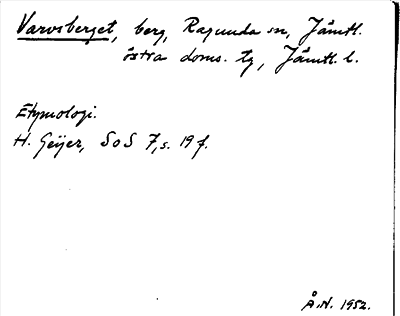 Varvsberget, berg, Ragunda sn, Jämtl.
östra doms. tg, Jämtl. l.
Etymologi.
H. Geijer, SoS 7, s. 19 f.
Å.N. 1952.